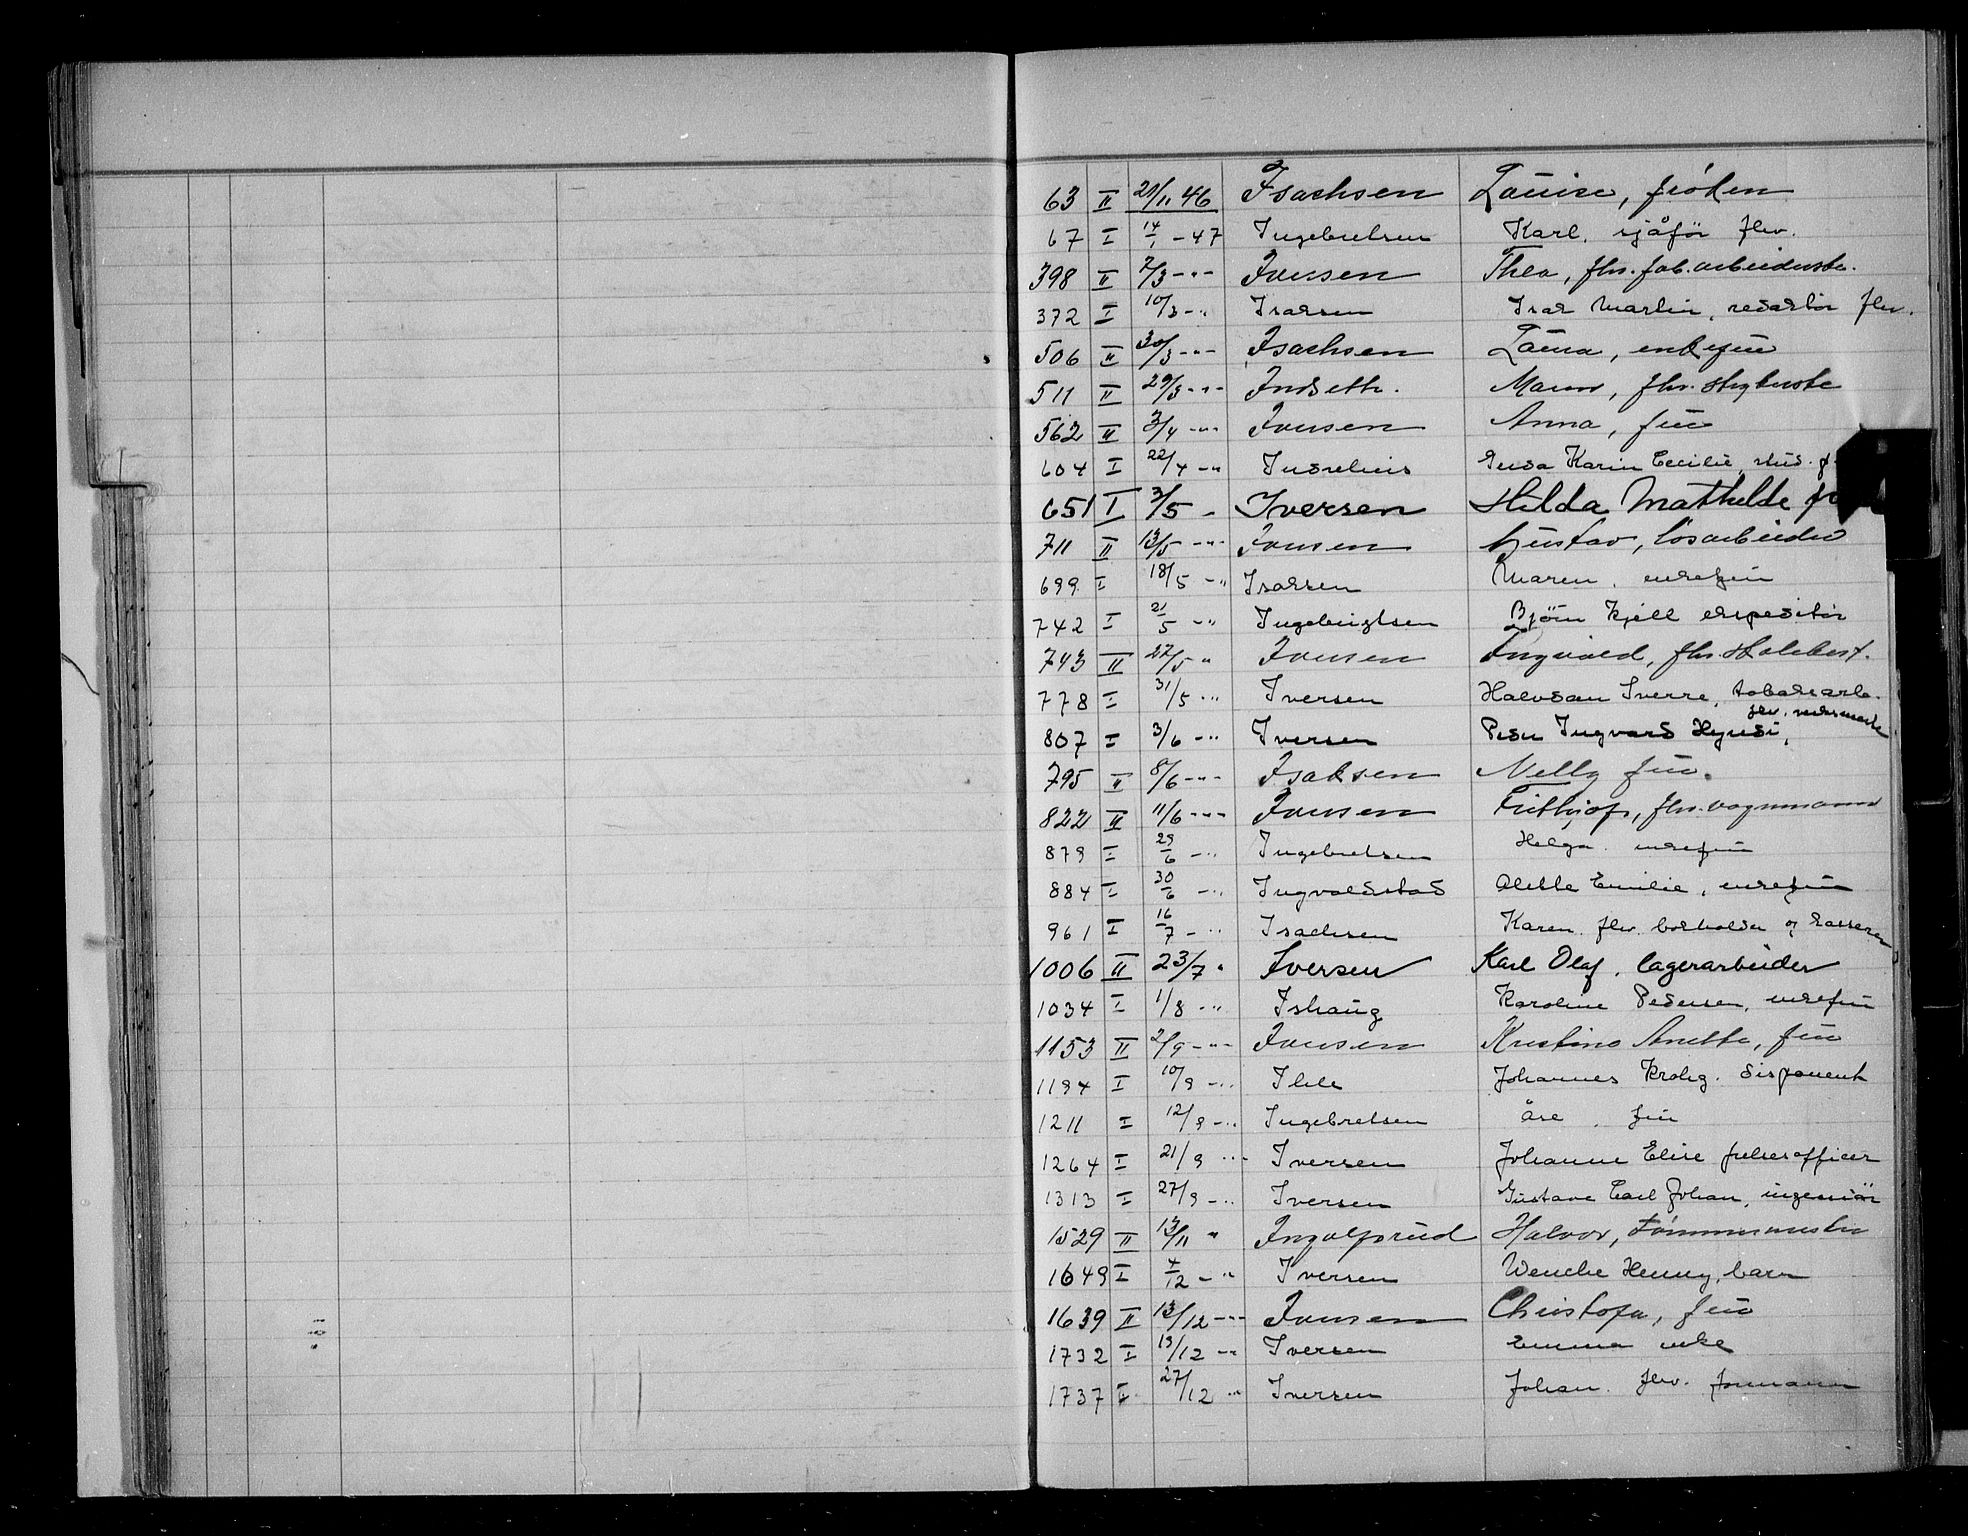 63 II 21/11 46 Isachsen Louise, frøken
67 I 14/1 - 47 Ingebretsen Karl. sjåfør fhv.
398 II 7/3 - " - Iversen Thea, fhv. fab. arbeiderske.
372 I 10/3 - " Isaksen Isak Martin, redaktør fhv.
506 II 30/3 - " - Isachsen Laura, enkefru
511 II 29/3 - " - Indseth.
562 II 3/4 - " - Iversen Anna, fru
604 I 22/4 - " Karin Cecilie, stud.
651 I 3/5 - Iversen Hilda Mathilde
711 II 13/5 - " - Iversen Gustav, løsarbeider
699 I 18/5 - " Isaksen Maren. enkefru
742 I 21/5 - " Ingebrigtsen Bjørn Kjell ekspeditør
743 II 27/5 " Iversen Ingvald, fhv.
778 I 31/5 - " Iversen Halvdan Sverre, tobakkarb.
fhv. verksmester
807 I 3/6 - " Iversen Peder Ingvard Hyndi,
795 II 8/6 - " - Isaksen Nelly fru.
822 II 11/6 - " - Iversen Frithjof, fhv. vognmann
879 I 29/6 - " Ingebretsen Helga. enkefru
884 I 30/6 - " Ingvaldstad Alette Emilie, enkefru
961 I 16/7 - " Isachsen Karen. fhv. bokholder og kasserer
1006 II 23/7 " Iversen Karl Olaf. lagerarbeider
1034 I 1/8 - " Ishaug Karoline Pedersen, enkefru
1153 II 2/9 - " - Iversen Kristine Anette, fru
1194 I 10/9 - " Ihle Johannes Krohg. disponent
1211 I 12/9 - " Ingebretsen Åse, fru
1264 I 21/9 - " - Iversen Johanne Elise frelsesofficer
1313 I 27/9 - " Iversen Gustave Carl Johan, ingeniør
1529 II 13/11 " Ingolfsrud Halvor, tømmermester
1649 I 4/12 - " Iversen Wenche Henny, barn
1639 II 13/12 - " - Iversen Christofa, fru
1732 I 19/12 - " Iversen Emma enke
1737 I 27/12 - " Iversen Johan. fhv. formann